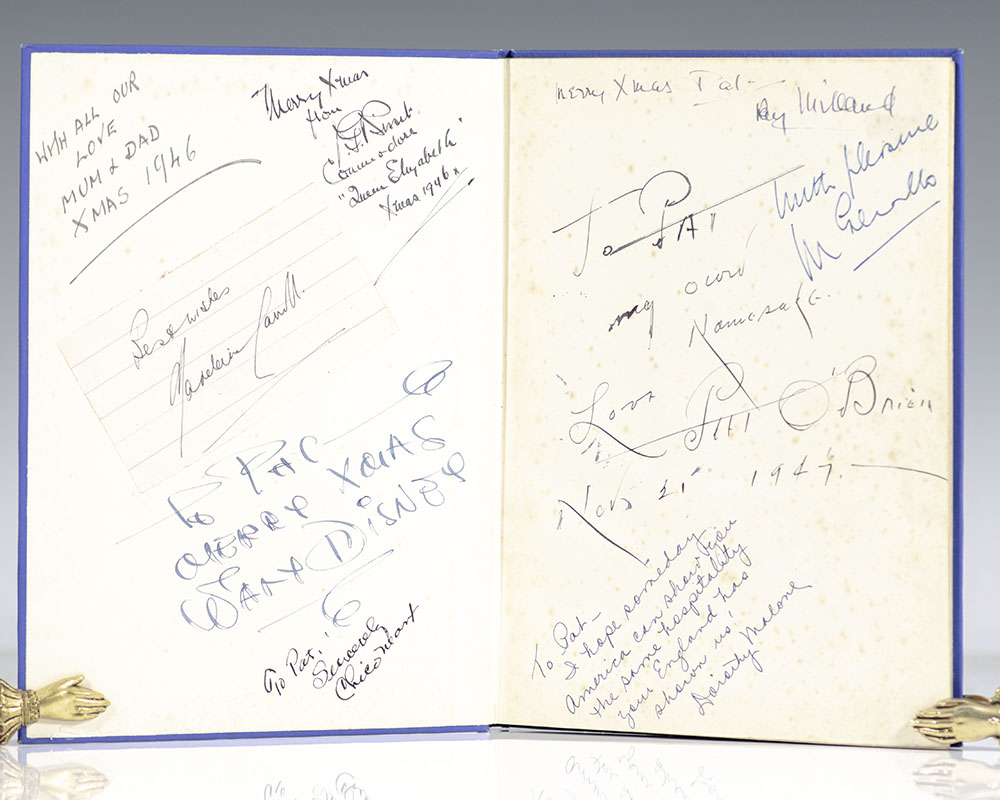 WITH ALL OUR
LOVE
MUM & DAD
XMAS 1946
Merry Xmas
from
Commodore
"Queen Elizabeth"
Xmas 1946
Best wishes
To Pat
MERRY XMAS
WALT DISNEY
To Pat!
Sincerely
Chico Marx
Merry Xmas Pat -
Ray Milland
With pleasure
M
To PAT
my own
Namesake.
Love
Pat O'Brien
Nov 21 1947.
To Pat -
I hope someday
America can show you
the same hospitality
your England has
shown us!
Dorothy Malone